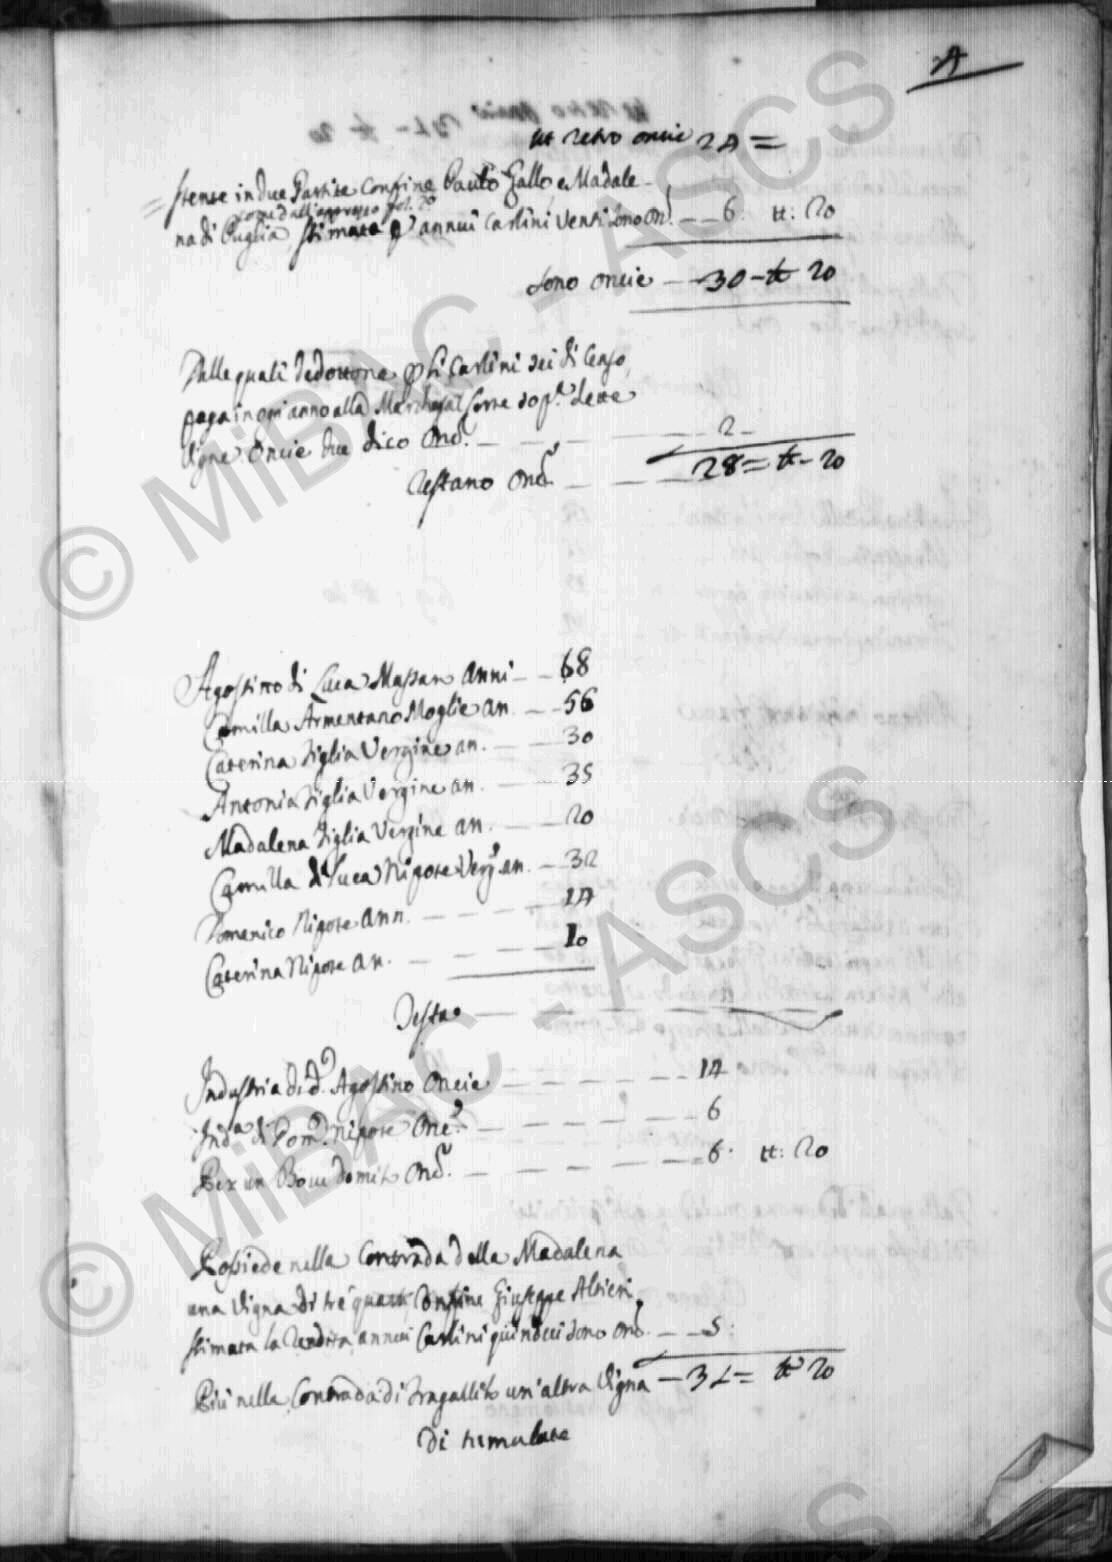 4
ut retro oncie 24 =
stense in due Partite Confine Paulo Gallo e Madale-
come dall'apprezzo fol. 
na di Puglia, stimate p annui Carlini venti sono on.e — 6: tt: 20
sono oncie — 30 - tt 20
Dalle quali dedottone p li Carlini sei di Censo,
paga in ogn'anno alla sop.a dette
Vigne Oncie due dico Onc. — 2 -
Restano Onc. — 28 = tt - 20
Agostino di Luca Massaro Anni — 68
Camilla Armentano Moglie an. — 56
Caterina figlia Vergine an. — 30
Antonia figlia Vergine an. — 35
Madalena figlia Vergine an. — 20
Camilla di Luca Nipote Verg. an. — 32
Domenico Nipote Ann. — 14
Caterina Nipote an. — 10
Testa
Industria di d. Agostino Oncie — 14
Ind.a di Dom. Nipote Onc. — 6
Per un Bove domito Onc. — 6: tt: 20
Possiede nella Contrada della Madalena
una Vigna di tre quarti Confine Giuseppe Altieri
stimata la rendita annui Carlini quindeci sono onc. — 5:
Più nella Contrada di Fragallito un'altra Vigna — 31 = tt 20
di tumulate
© MiBAC - ASCS
© MiBAC - ASCS